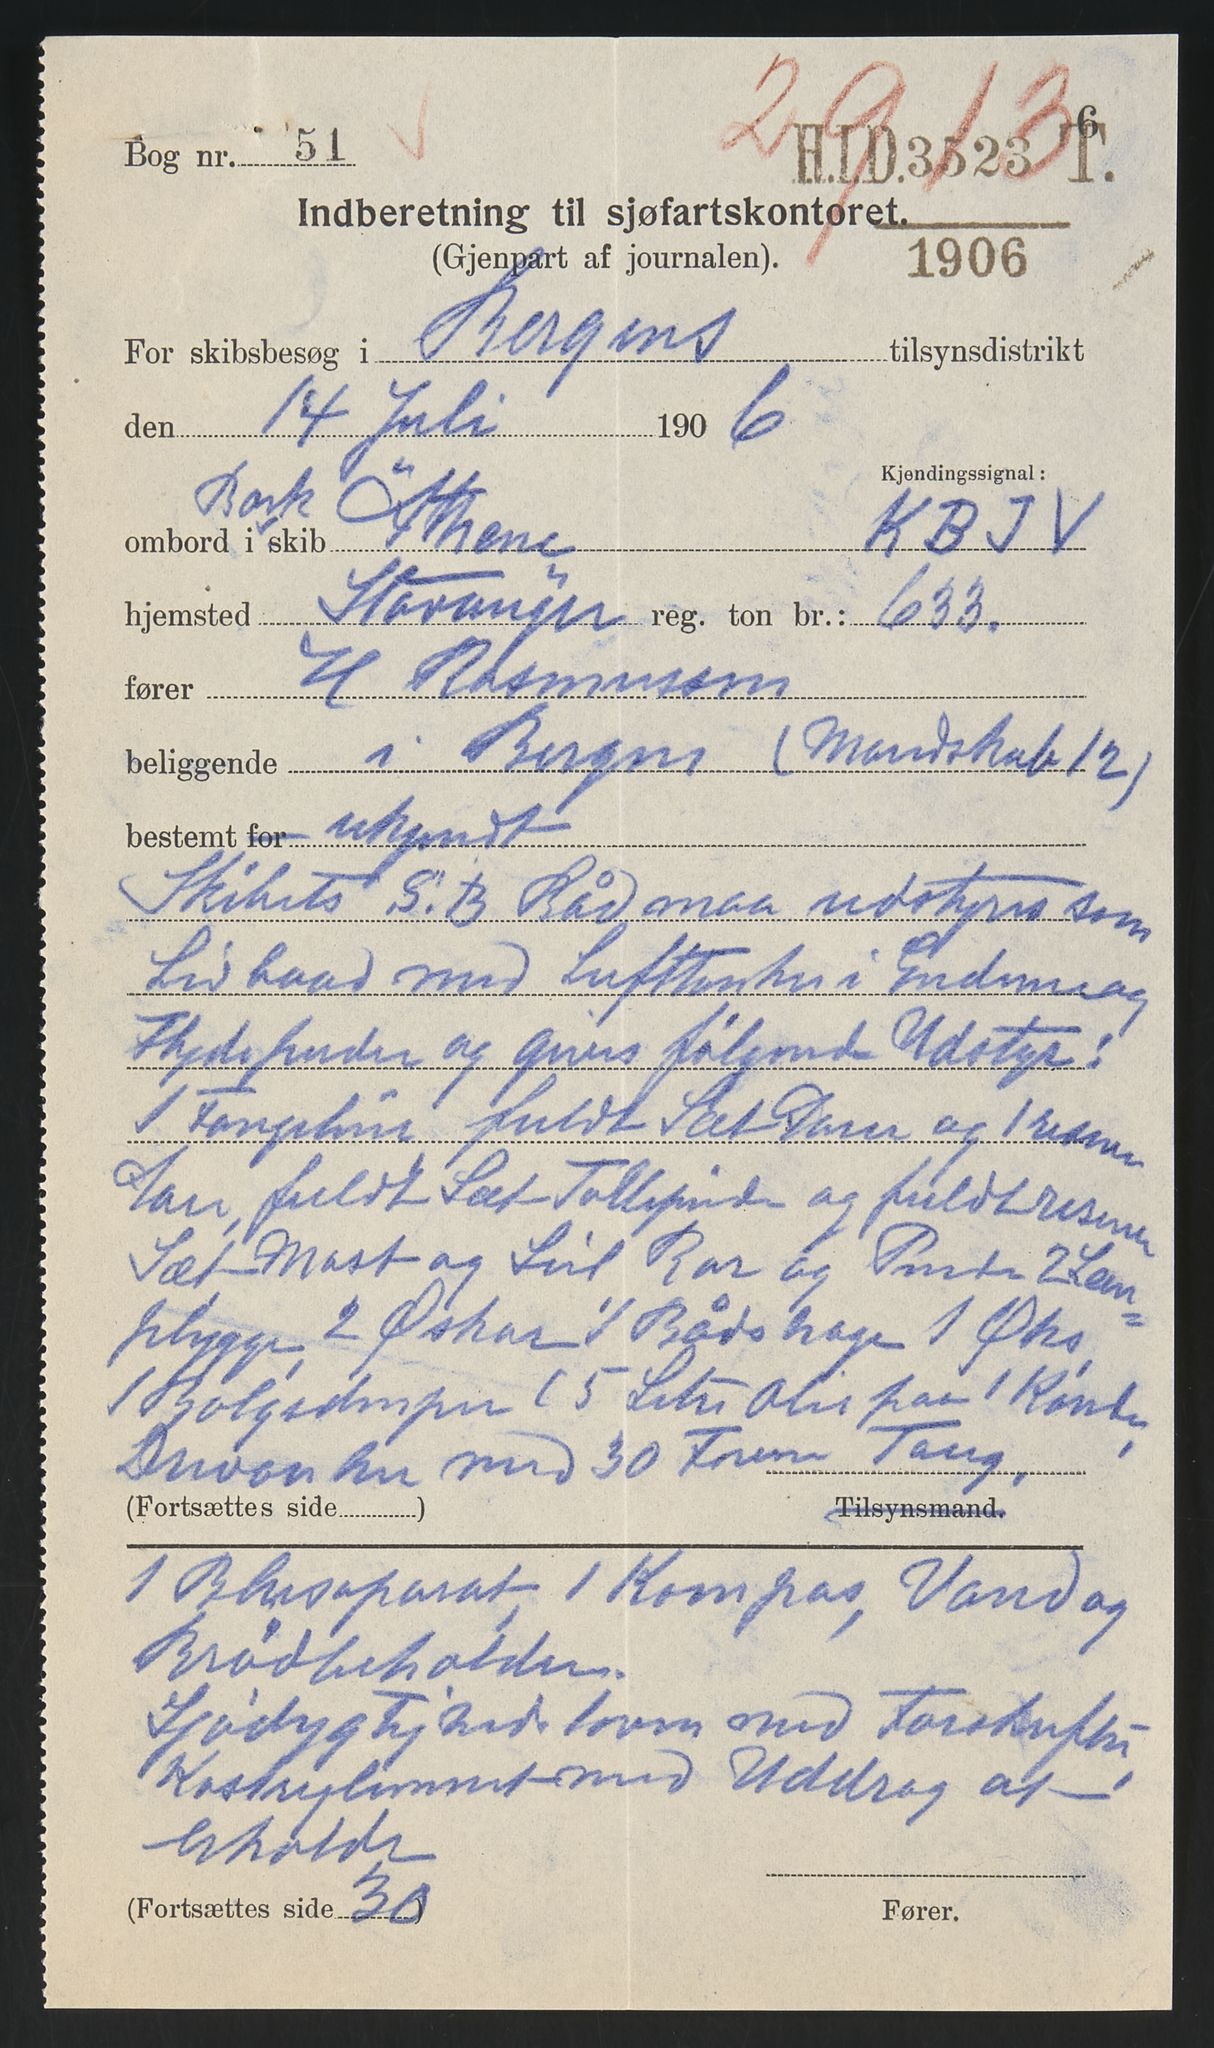 2913
6
Bog nr. 51
H.I.D. 3523 T.
Indberetning til sjøfartskontoret.
1906
(Gjenpart af journalen).
For skibsbesøg i Bergens tilsynsdistrikt
den 14 Juli 1906
Kjendingssignal:
Bark
ombord i skib Athene KBJV
hjemsted Stavanger reg. ton br.: 633.
fører H Rasmussen
beliggende i Bergen (Mandskab 12)
bestemt for ukjendt
Skibets S.B Båd maa udstyres som
Livbaad med Lufttanker i Enderne og
Flydepuder og gives følgende Udstyr:
1 Fangline fuldt Sæt Aarer og 1 reserve
Aare, fuldt Sæt Tollepinde og fuldt reserve
Sæt Mast og Seil Ror og Pinde 2 Læn-
plugge, 2 Øskar 1 Bådshage 1 Øks,
1 Bølgedemper (5 Liter Olie paa 1 Kande,
Drivanker med 30 Favne Taug,
(Fortsættes side ) Tilsynsmand.
1 Blusaparat, 1 Kompas, Vand og
Brödbeholder.
Sjødygtighedsloven med Forskrifter,
Kostreglement med Uddrag at
erholde
(Fortsættes side 30) Fører.